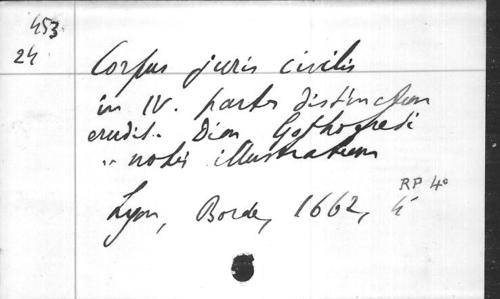 453
24
Corpus juris civilis
in IV. partes distinctum
erudit.. Dion Gothofredi
.. notis illustratum
Lyon, Borde, 1662, 4°
RP 4°